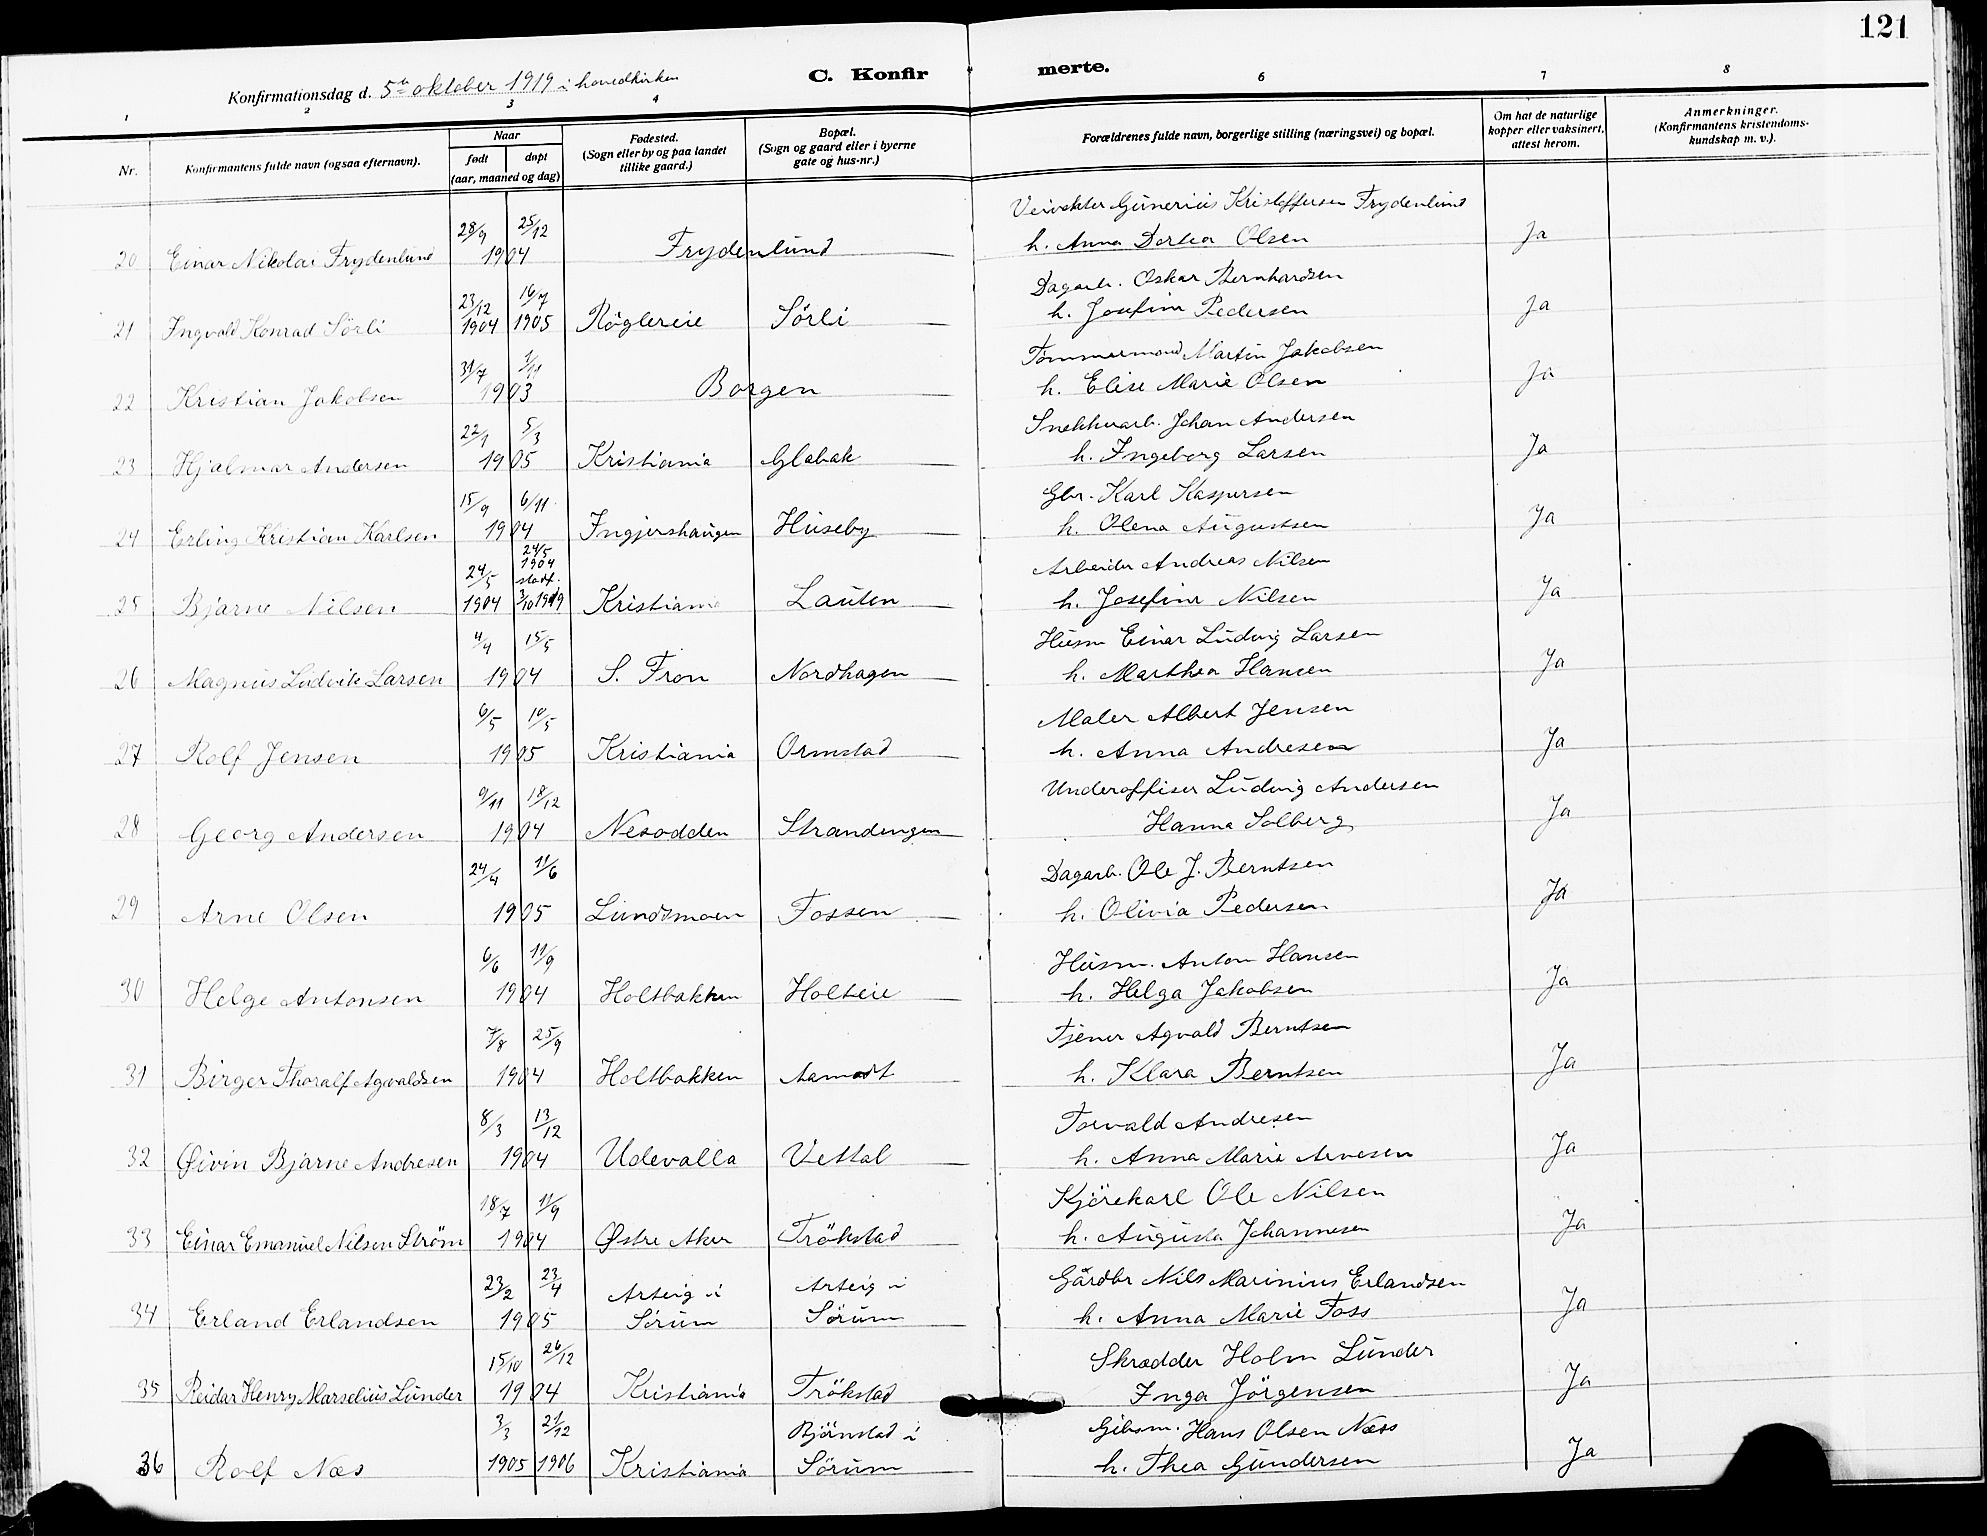 121
C. Konfirmerte.
Konfirmationsdag d. 5te oktober 1919 i hovedkirken
1 2 3 4 6 7 8
Nr.
Konfirmantens fulde navn (ogsaa efternavn).
Naar
født døpt
(aar, maaned og dag)
Fødested.
(Sogn eller by og paa landet
tillike gaard.)
Bopæl.
(Sogn og gaard eller i byerne
gate og hus-nr.)
Forældrenes fulde navn, borgerlige stilling (næringsvei) og bopæl.
Om hat de naturlige
kopper eller vaksinert,
attest herom.
Anmerkninger.
(Konfirmantens kristendoms-
kundskap m. v.).
28/9 25/12 Veivokter Gunerius Kristoffersen Frydenlund
20 Einar Nikolai Frydenlund 1904 Frydenlund h. Anna Dortea Olsen Ja
23/12 16/7 Dagarb. Oskar Bernhardsen
21 Ingvald Konrad Sörli 1904 1905 Röglereie Sörli h. Josefine Pedersen Ja
31/7 1/11 Tømmermand Martin Jakobsen
22 Kristian Jakobsen 1903 Borgen h. Elise Marie Olsen Ja
22/1 5/3 Snekkerarb. Johan Andersen
23 Hjalmar Andersen 1905 Kristiania Glabak h. Ingeborg Larsen Ja
15/9 6/11 Gbr. Karl Kaspersen
24 Erling Kristian Karlsen 1904 Ingjershaugen Huseby h. Olena Augustsen Ja
24/5 24/5 1904 stadf. Arbeider Andreas Nilsen
25 Bjarne Nilsen 1904 3/10 1919 Kristiania Lauten h. Josefine Nilsen Ja
4/4 15/5 Husm Einar Ludvig Larsen
26 Magnus Ludvik Larsen 1904 S. Fron Nordhagen h. Marthea Hansen Ja
6/5 10/5 Maler Albert Jensen
27 Rolf Jensen 1905 Kristiania Ormstad h. Anna Andresen Ja
9/11 18/12 Underoffiser Ludvig Andersen
28 Georg Andersen 1904 Nesodden Strandengen Hanna Solberg Ja
24/4 11/6 Dagarb. Ole J. Berntsen
29 Arne Olsen 1905 Lundsmoen Fossen h. Olivia Pedersen Ja
6/6 11/9 Husm. Anton Hansen
30 Helge Antonsen 1904 Holtbakken Holteie h. Helga Jakobsen Ja
7/8 25/9 Tjener Agvald Berntsen
31 Birger Thoralf Agvaldsen 1904 Holtbakken Aamodt h. Klara Berntsen Ja
8/3 13/12 Torvald Andresen
32 Øivin Bjarne Andresen 1904 Udevalla Vettal h. Anna Marie Arvesen Ja
18/7 11/9 Kjörekarl Ole Nilsen
33 Einar Emanuel Nilsen Ström 1904 Østre Aker Trökstad h. Augusta Johannesen Ja
23/2 23/4 Arteig i Arteig i Gårdbr Nils Marinius Erlandsen
34 Erland Erlandsen 1905 Sörum Sörum h. Anna Marie Foss Ja
15/10 26/12 Skrædder Holm Lunder
35 Reidar Henry Marselius Lunder 1904 Kristiania Trökstad Inga Jörgensen Ja
3/3 21/12 Bjönstad i Hans Olsen Næss
36 Rolf Næs 1905 1906 Kristiania Sörum h. Thea Gundersen Ja